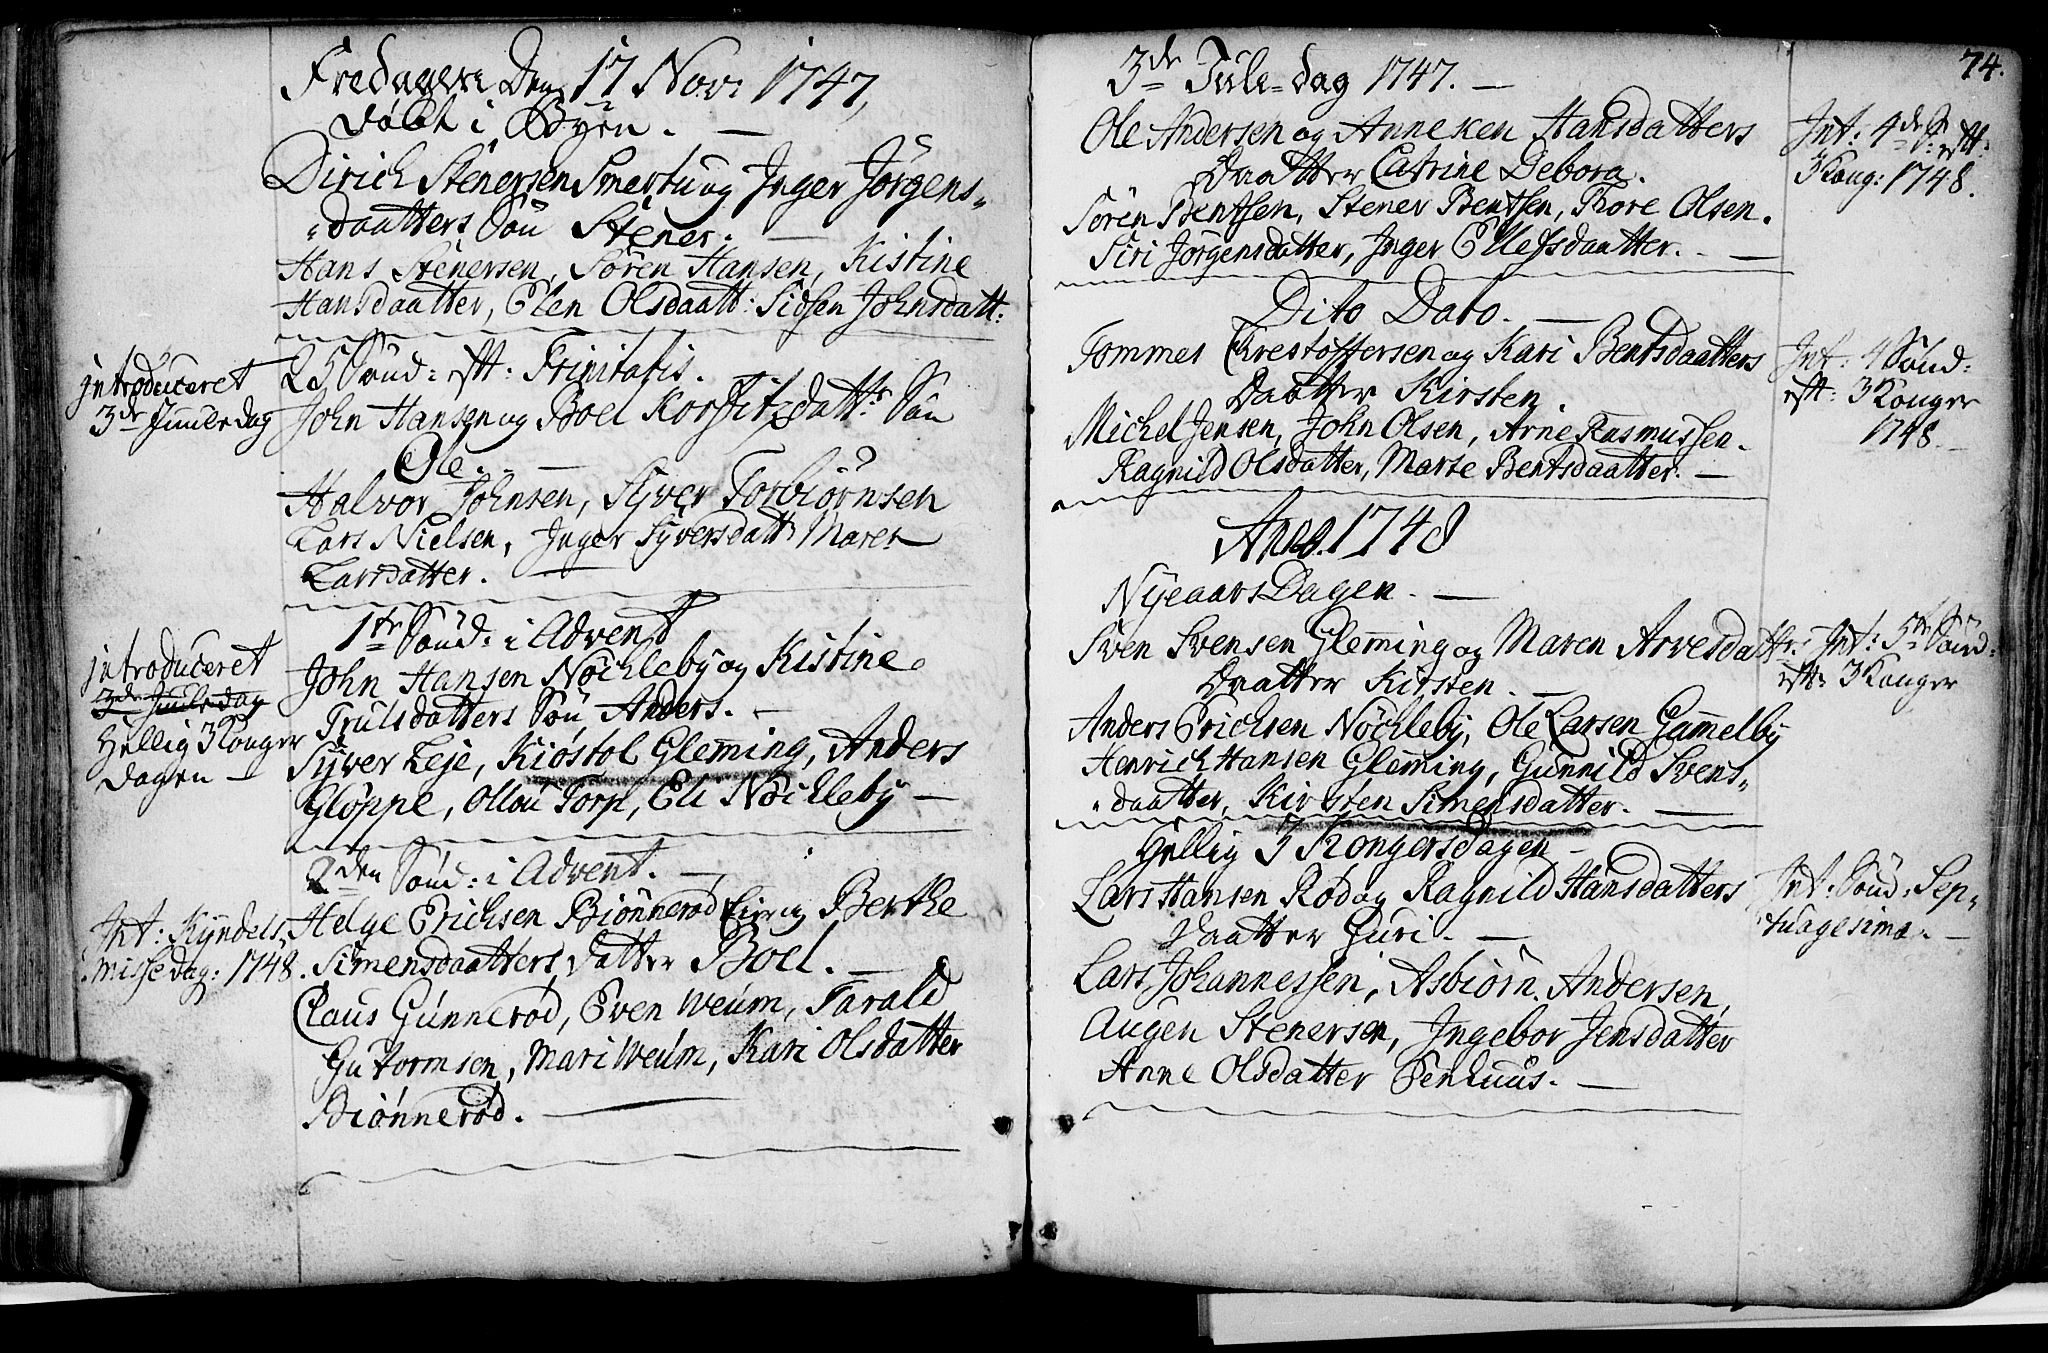 Fredagen Den 17 Nov: 1747,
døbt i Byen. —
Dirich Stenersen Smertu og Inger Jörgens-
daatters Søn Stener. —
Hans Stenersen, Sören Hansen, Kistine
Hansdaatter, Elen Olsdaatt: Sidsen Johnsdatt:
introduceret
3de Juuledag
25 Sönd: eft: Trinitatis.
John Hansen og Boel Korfitzdattrs Sön
Ole. —
Halvor Johnsen, Syver Torbiörnsen
Lars Nielsen, Inger Syversdattr Maren
Larsdatter. —
introduceret
3de Juuledag
Hellig 3 Konger
Dagen —
1te Sönd: i Advent
John Hansen Nöckleby og Kistine
Trulsdatters Sön Anders. —
Syver Leje, Kiöstol Glem̄ing, Anders
Glöppe, Ollou Torp, Eli Nöckleby —
Int: Kyndels-
misse dag: 1748.
2den Sönd: i Advent. —
Helge Erichsen Biönnerød Eie og Berthe
Simensdaatters Datter Boel. —
Claus Gunnerød, Even Weum, Tarald
Guttormsen, Mari Weum, Kari Olsdatter
Biönnerød. —
74.
3de Jule-dag 1747. —
Ole Andersen og Anneken Hansdatters
Daatter Catrine Debora.
Sören Bentsen, Stener Bentsen, Tore Olsen.
Siri Jörgensdatter, Inger Ellefsdaatter. —
Int: 4de S: eft:
3 Kong: 1748.
Dito Dato. —
Tommes Crestoffersen og Kari Bentsdaatters
Daatter Kirsten.
Michel Jensen, John Olsen, Arne Rasmussen.
Ragnild Olsdatter, Marte Bentsdaatter. —
Int: 4 Sönd:
eft: 3 Konger
1748. —
Anno. 1748
Nyeaars Dagen. —
Sven Svensen Glem̄ing og Maren Arvesdattrs
Daatter Kirsten. —
Anders Erichsen Nöckleby, Ole Larsen Gam̄elby
Henrich Hansen Glem̄ing, Gunnild Svens-
daatter, Kirsten Simensdatter. —
Int: 5te Sönd:
eft: 3 Konger
Hellig 3 Kongersdagen —
Lars Hansen Rød og Ragnild Hansdatters
Daatter Guri. —
Lars Johannessen, Asbiörn Andersen,
Augen Stenersen, Ingebor Jensdatter
Anne Olsdatter Eenhuus. —
Int: Sönd: Sep-
tuagesima. —